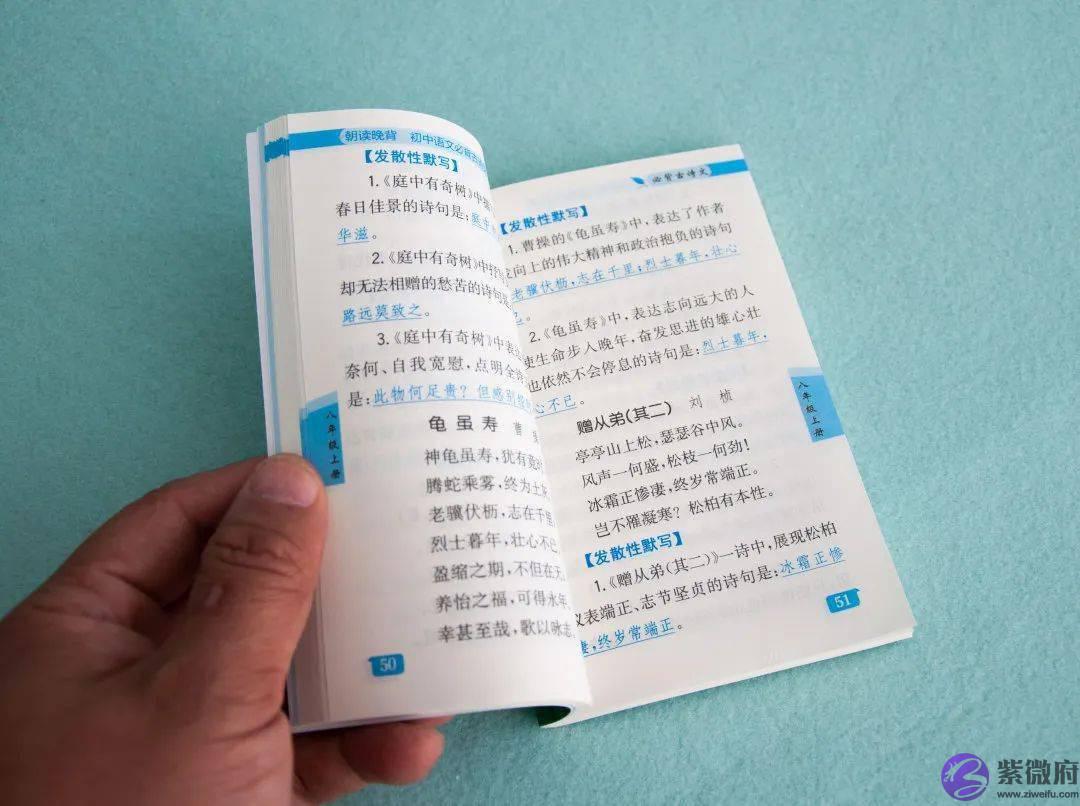 朝读晚背 初中语文必背古诗
【发散性默写】
1.《庭中有奇树》中
春日佳景的诗句是:庭中
华滋。
2.《庭中有奇树》中
却无法相赠的愁苦的诗句是
路远莫致之。
3.《庭中有奇树》中表
奈何、自我宽慰,点明全
是:此物何足贵?但感别经
龟虽寿 曹操
神龟虽寿,犹有竟
腾蛇乘雾,终为土
老骥伏枥,志在千里
烈士暮年,壮心不已
盈缩之期,不但在天
养怡之福,可得永年
幸甚至哉,歌以咏志
八年级上册
50
必背古诗文
【发散性默写】
1.曹操的《龟虽寿》中,表达了作者
向上的伟大精神和政治抱负的诗句
老骥伏枥,志在千里;烈士暮年,壮心
已。
2.《龟虽寿》中,表达志向远大的人
使生命步入晚年,奋发思进的雄心壮
也依然不会停息的诗句是:烈士暮年,
心不已。
赠从弟(其二) 刘桢
亭亭山上松,瑟瑟谷中风。
风声一何盛,松枝一何劲!
冰霜正惨凄,终岁常端正。
岂不罹凝寒?松柏有本性。
【发散性默写】
1.《赠从弟(其二)》一诗中,展现松柏
仪表端正、志节坚贞的诗句是:冰霜正惨
凄,终岁常端正。
八年级上册
51
紫微府
www.ziweifu.com